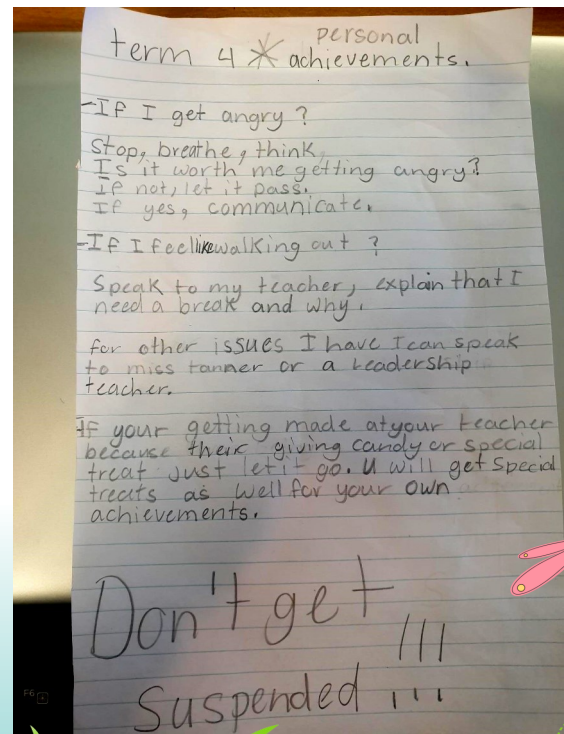 personal
term 4 * achievements.
-If I get angry?
Stop, breathe, think,
Is it worth me getting angry?
If not, let it pass.
If yes, communicate.
-If I feel like walking out?
Speak to my teacher, explain that I
need a break and why.
for other issues I have I can speak
to miss tanner or a Leadership
teacher.
If your getting made at your teacher
because their giving candy or special
treat Just let it go. U will get special
treats as well for your own
achievements.
Don't get !!!
Suspended !!!
F6